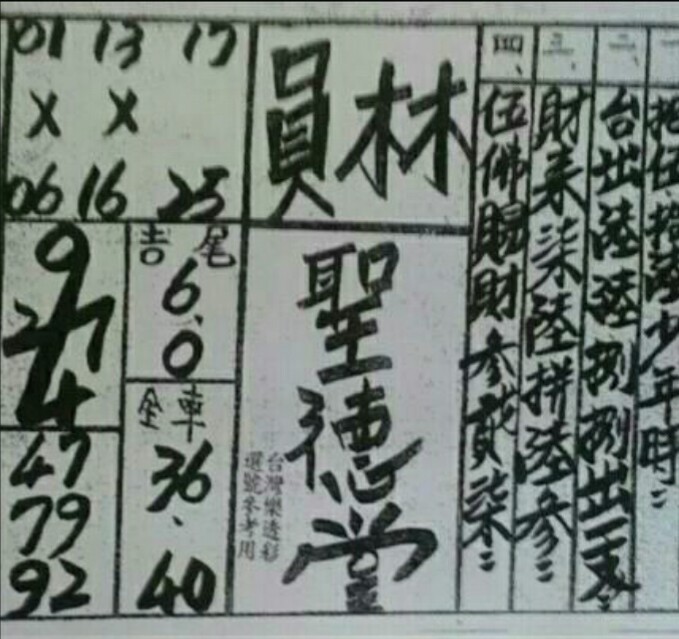 一、
拾伍拾陸少年時：
二、
台出陸陸捌捌出一支：
三、
財来柒陸拼陸參：
四、
伍佛賜財參貳柒：
員林
聖德堂
台灣樂透彩
選號參考用
01 13 17
X X
06 16 25
吉尾
6、0
全車
36、40
9
2/7
4
47
79
92